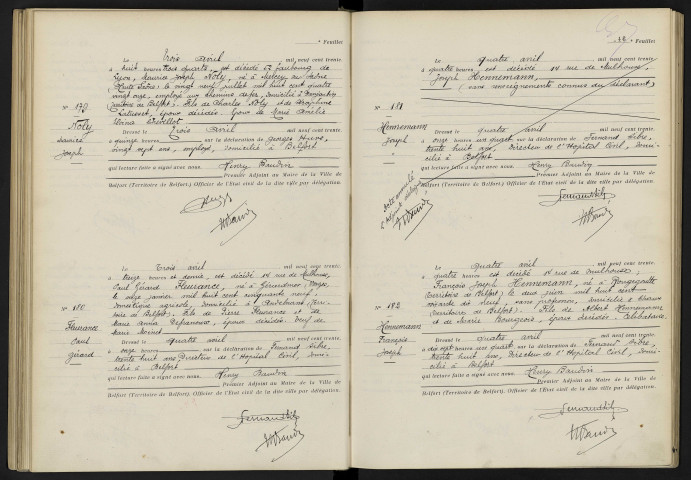 e Feuillet
Le Trois avril mil neuf cent trente
à huit heures trois quarts, est décédé 52 Faubourg de
Lyon, Maurice Joseph Noly, né à Mercey sur Saône
(Haute Saône) le vingt neuf juillet mil huit cent quatre
vingt onze, employé aux chemins de fer, domicilié à
(Territoire de Belfort). Fils de Charles Noly et de Joséphine
époux décédés. Époux de Marie Amélie
N° 179
Noly
Maurice
Joseph
Devant le Trois Avril mil neuf cent trente
à quinze heures sur la déclaration de Georges
vingt sept ans, employé, domicilié à Belfort
qui lecture faite a signé avec nous. Henry Baudin
Premier Adjoint au Maire de la Ville de
Belfort (Territoire de Belfort), Officier de l'Etat civil de la dite ville par délégation.
Le Trois avril mil neuf cent trente
à treize heures et demie, est décédé 14 rue de Mulhouse,
Paul Gérard Fleurance, né à Gérardmer (Vosges)
le seize janvier mil huit cent cinquante neuf,
domestique agricole, domicilié à (Terri-
toire de Belfort). Fils de Pierre Fleurance et de
Marie Anne époux décédés. Veuf de
Marie
N° 180
Fleurance
Paul
Gérard
Devant le quatre avril mil neuf cent trente
à onze heures sur la déclaration de Fernand Libre,
trente huit ans, Directeur de l'Hôpital Civil, domi-
cilié à Belfort
qui lecture faite a signé avec nous. Henry Baudin
Premier Adjoint au Maire de la Ville de
Belfort (Territoire de Belfort), Officier de l'Etat civil de la dite ville par délégation.
e Feuillet
Le quatre avril mil neuf cent trente
à quatre heures est décédé 14 rue de Mulhouse,
Joseph Hennemann,
(sans renseignements connus du déclarant)
N° 181
Hennemann
Joseph
Devant le quatre avril mil neuf cent trente
à onze heures un quart sur la déclaration de Fernand Libre,
trente huit ans, Directeur de l'Hôpital Civil, domi-
cilié à Belfort
qui lecture faite a signé avec nous. Henry Baudin
Premier Adjoint au Maire de la Ville de
Belfort (Territoire de Belfort), Officier de l'Etat civil de la dite ville par délégation.
acte annulé
l'adjoint délégué
Le quatre avril mil neuf cent trente
à quatre heures est décédé 14 rue de Mulhouse,
François Joseph Hennemann, né à Rougegoutte
(Territoire de Belfort) le deux juin mil huit cent
soixante dix neuf, sans profession, domicilié à Giromagny
(Territoire de Belfort). Fils de Albert Hennemann
et de Marie Bourgeois, époux décédés. Célibataire
N° 182
Hennemann
François
Joseph
Devant le quatre avril mil neuf cent trente
à dix sept heures un quart sur la déclaration de Fernand Libre,
trente huit ans, Directeur de l'Hôpital Civil, domi-
cilié à Belfort
qui lecture faite a signé avec nous. Henry Baudin
Premier Adjoint au Maire de la Ville de
Belfort (Territoire de Belfort), Officier de l'Etat civil de la dite ville par délégation.